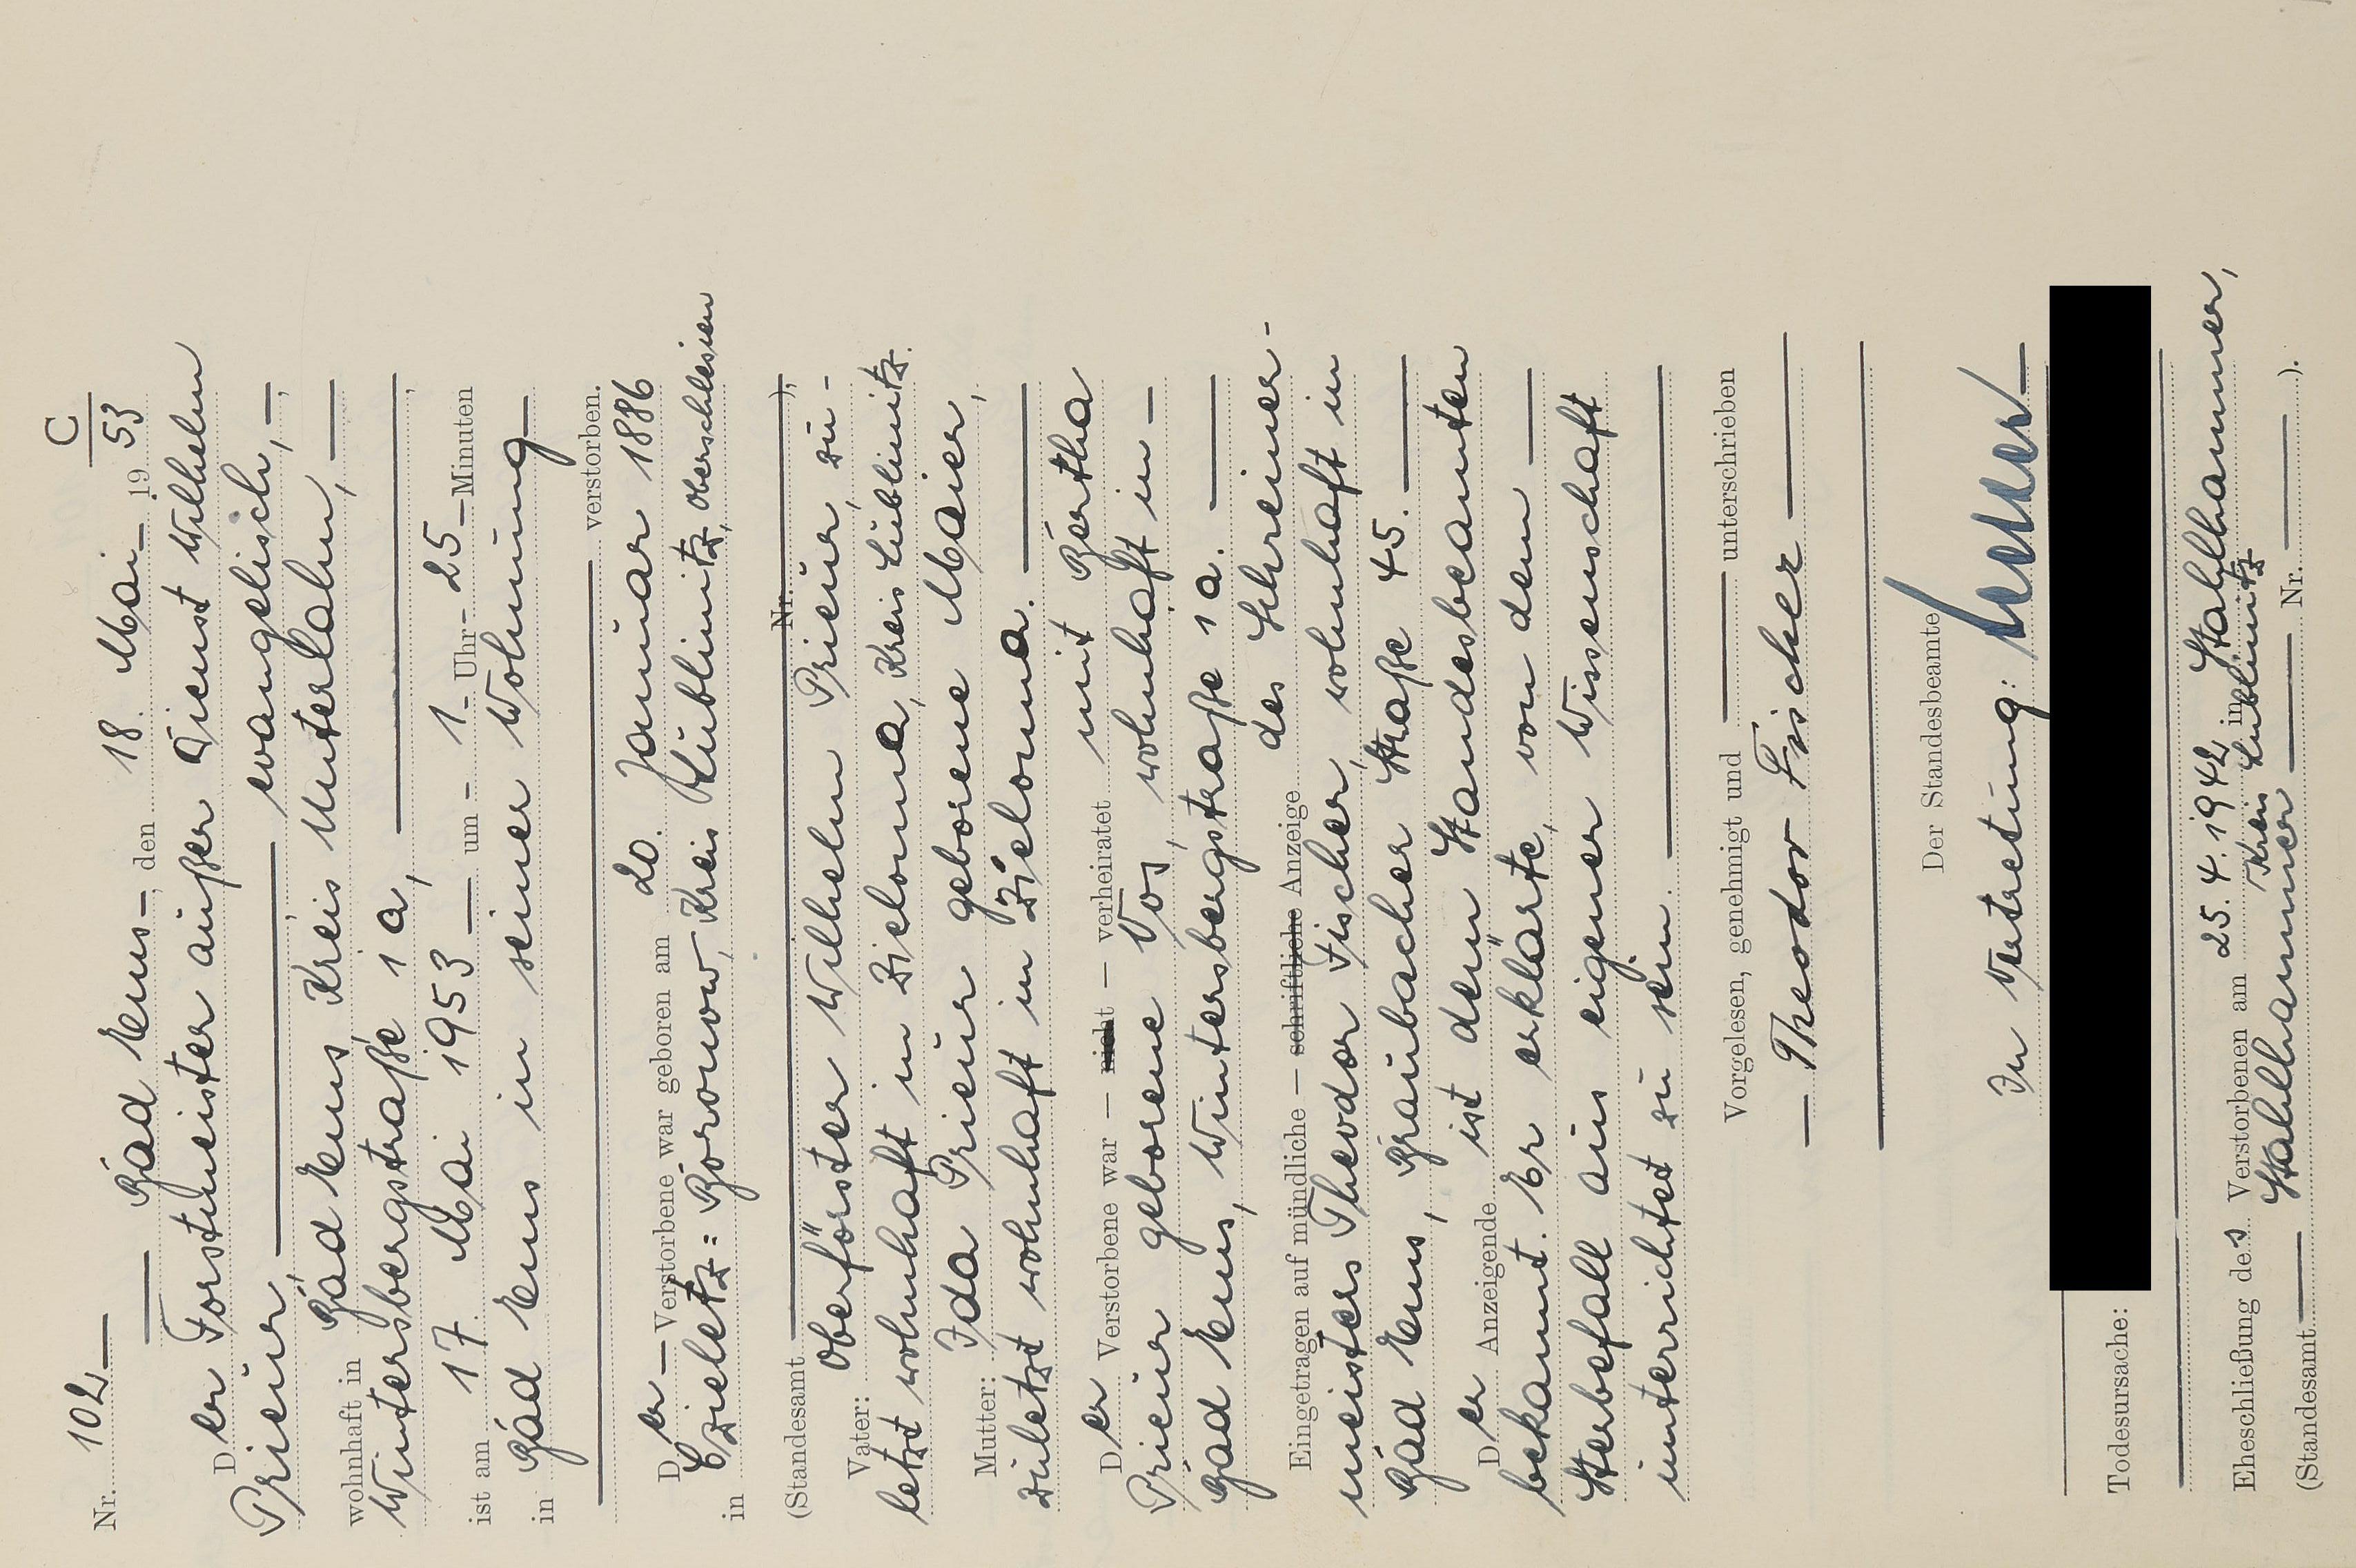 C
Nr. 102 53
Bad Ems, den 18. Mai 19
Der Forstmeister außer Dienst Wilhelm
Prieur, evangelisch,
wohnhaft in Bad Ems Kreis Unterlahn,
Wintersbergstraße 1a,
ist am 17. Mai 1953 um 1 Uhr 25 Minuten
in Bad Ems in seiner Wohnung
verstorben.
Der Verstorbene war geboren am 20. Januar 1886
in Czieletz=Boronow, Kreis Lüblinitz, Oberschlesien
(Standesamt Nr. ),
Vater: Oberförster Wilhelm Prieur, zu-
letzt wohnhaft in Zielonna, Kreis Lüblinitz.
Mutter: Ida Prieur geborene Maier,
zuletzt wohnhaft in Zielonna.
Der Verstorbene war — nicht — verheiratet mit Bertha
Prieur geborene Vos, wohnhaft in
Bad Ems, Wintersbergstraße 1a.
Eingetragen auf mündliche — schriftliche Anzeige des Schreiner-
meisters Theodor Fischer, wohnhaft in
Bad Ems, Braubacher Straße 45.
Der Anzeigende ist dem Standesbeamten
bekannt. Er erklärte, von dem
Sterbefall aus eigener Wissenschaft
unterrichtet zu sein.
Vorgelesen, genehmigt und unterschrieben
Theodor Fischer
Der Standesbeamte
In Vertretung:
Todesursache:
Eheschließung des Verstorbenen am 25.4.1942 in Stahlhammer,
Kreis Lüblinitz
(Standesamt Stahlhammer Nr. ).